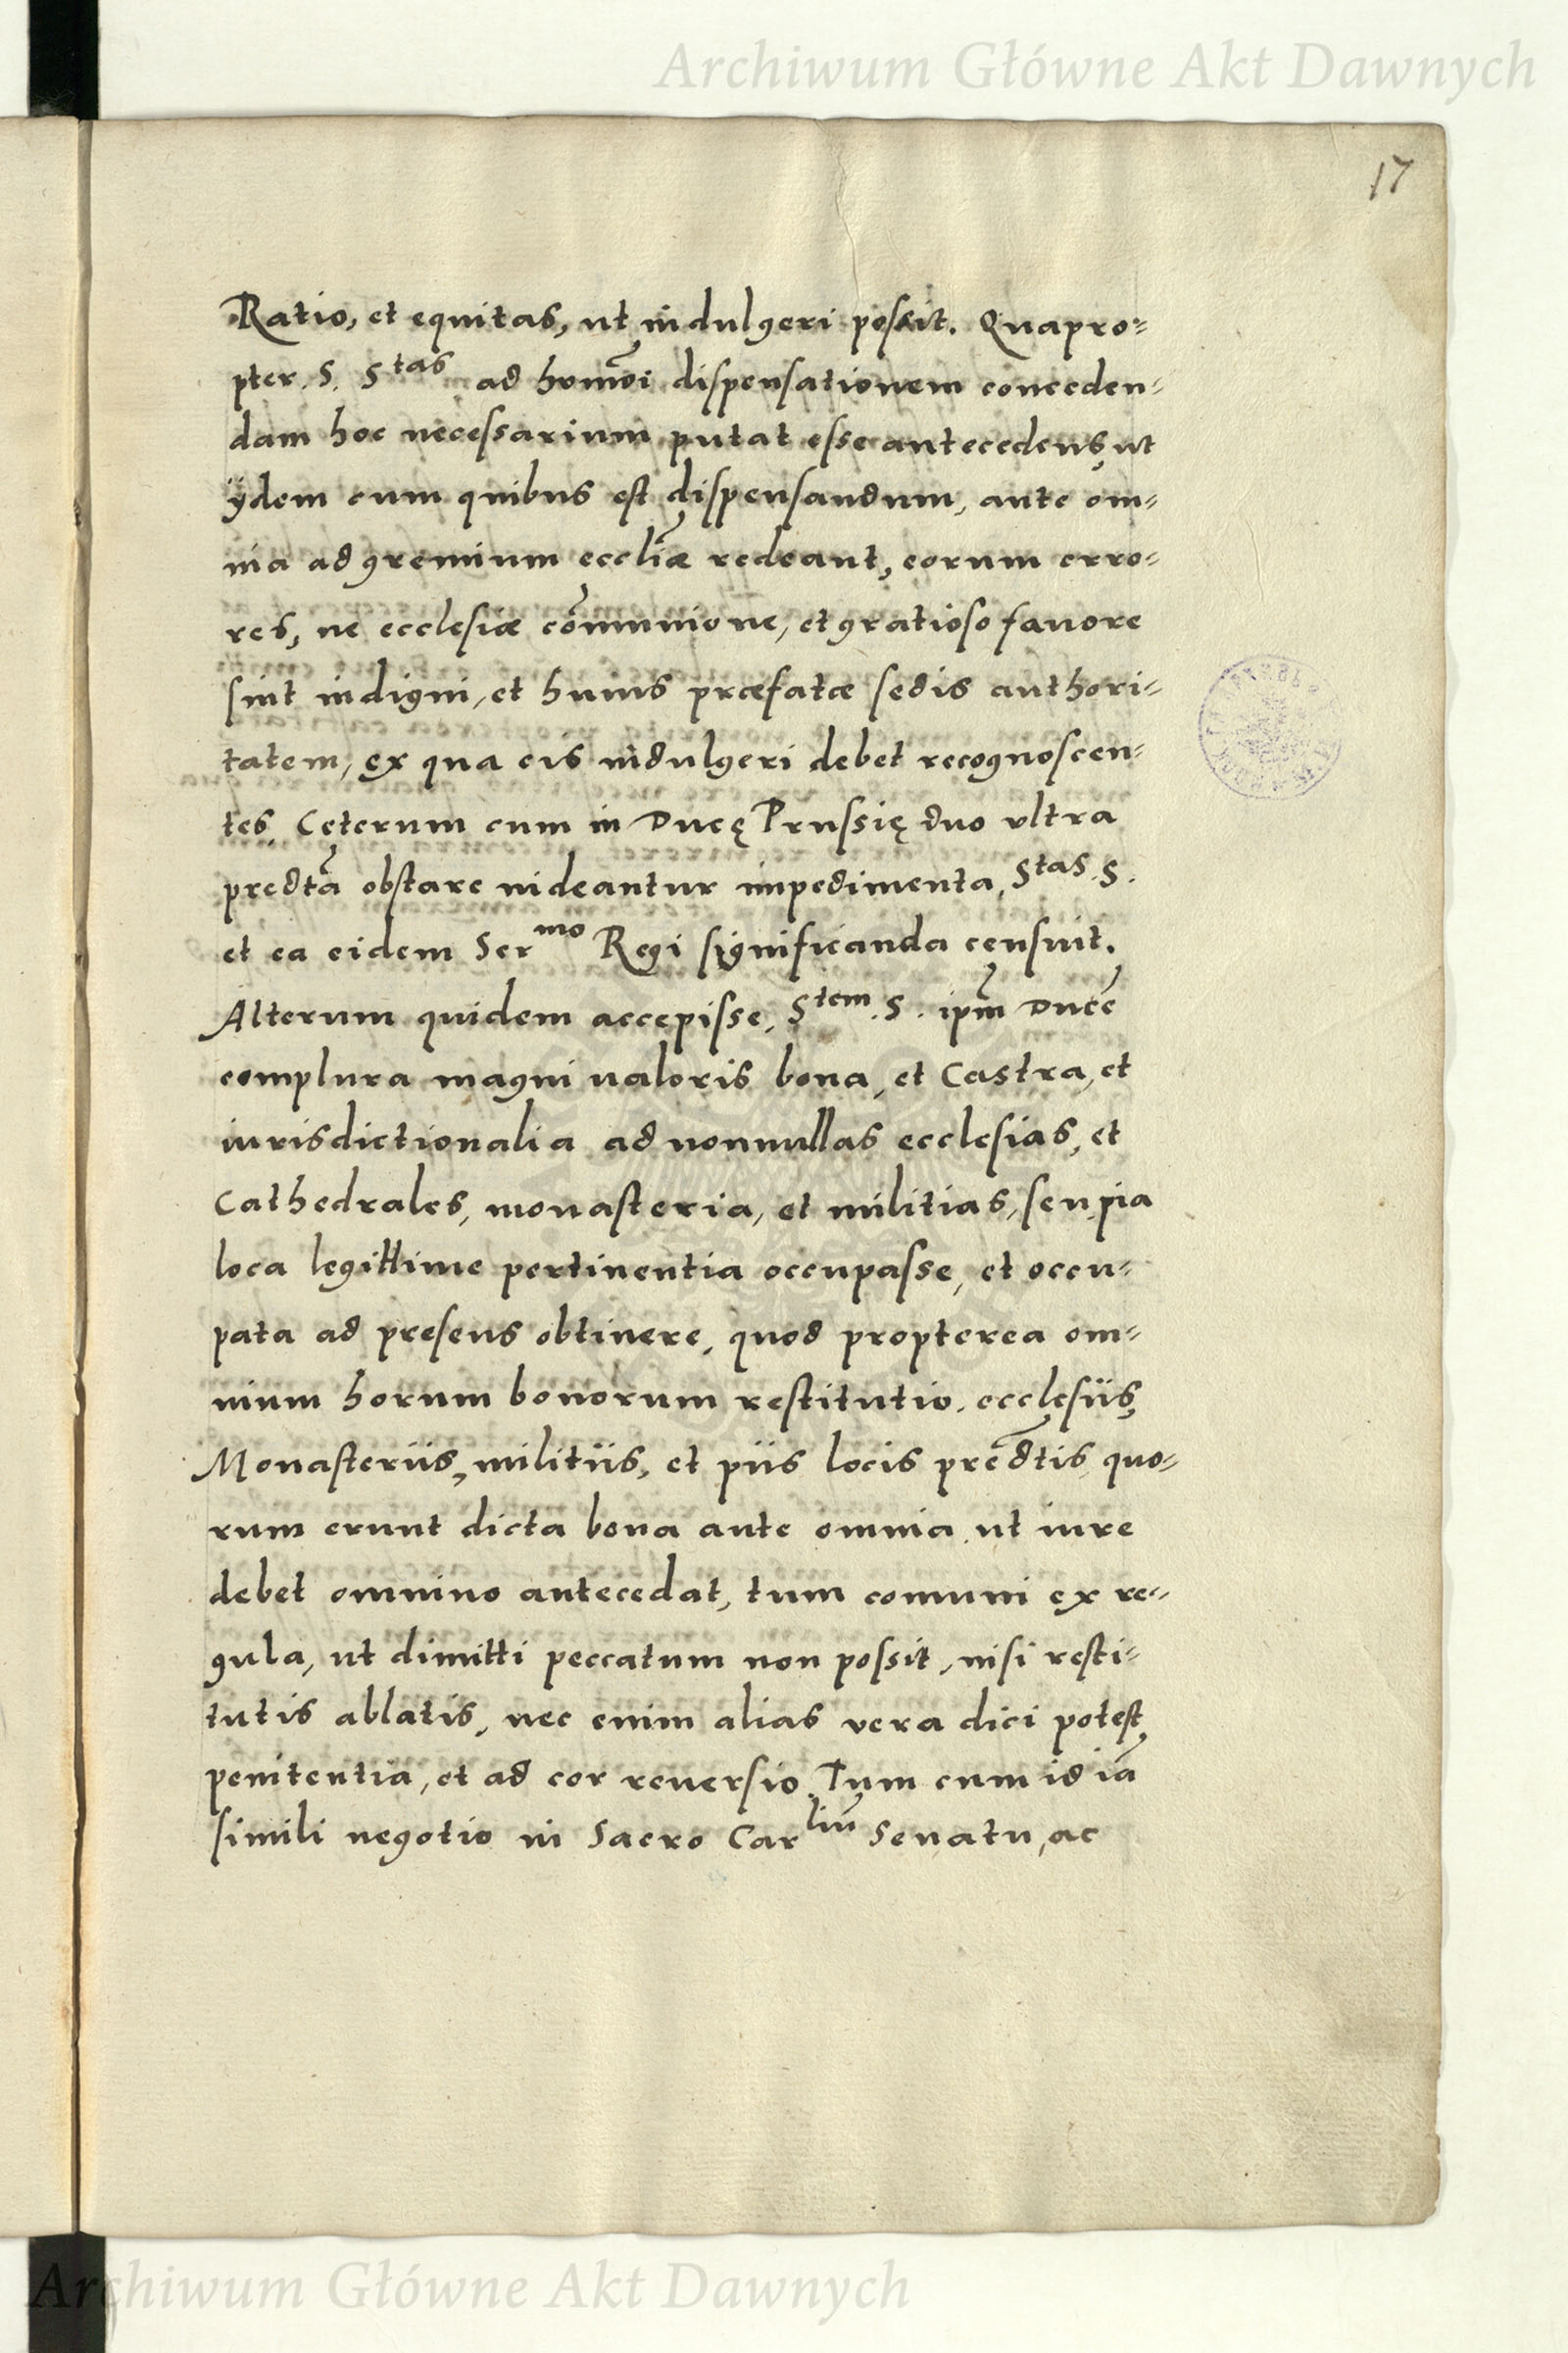 Archiwum Główne Akt Dawnych
17
Ratio, et equitas, ut indulgeri possit. Quapro=
pter. S. Stas ad homōi dispensationem conceden=
dam hoc necessarium putat esse antecedens, ut
ÿdem cum quibus est dispensandum, ante om=
nia ad gremium eccliæ redeant, eorum erro=
res, ne ecclesiæ cōmunione, et gratioso fauore
sint indigni, et huius præfatæ sedis authori=
tatem, ex qua eis indulgeri debet recognoscen=
tes. Ceterum cum in Ducę Prussię duo ultra
predtā obstare uideantur impedimenta, Stas. S.
et ea eidem Sermo Regi significanda censuit.
Alterum quidem accepisse, Stem. S. ipm̄ Ducē
complura magni ualoris bona, et Castra, et
iurisdictionalia ad nonnullas ecclesias, et
Cathedrales, monasteria, et militias, seu pia
loca legittime pertinentia occupasse, et occu=
pata ad presens obtinere, quod propterea om=
nium horum bonorum restitutio, ecclesiis,
Monasteriis, militiis, et piis locis predtis, quo=
rum erunt dicta bona ante omnia, ut iure
debet omnino antecedat, tum comuni ex re=
gula, ut dimitti peccatum non possit, nisi resti=
tutis ablatis, nec enim alias vera dici potest
penitentia, et ad cor reuersio. Tum cum id iā
simili negotio in Sacro Carliū Senatu, ac
Archiwum Główne Akt Dawnych